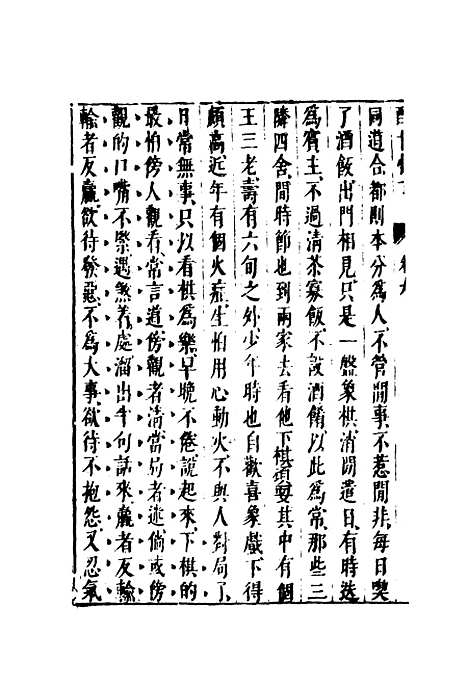 醒世恆言 卷九
同道合都則本分爲人不管閒事不惹閒非每日喫
了酒飯出門相見只是一盤象棋消閒遣日有時迭
爲賓主不過清茶寡飯不設酒餚以此爲常那些三
隣四舍閒時節也到兩家去看他下棋頑耍其中有個
王三老壽有六旬之外少年時也自歡喜象戲下得
頗高近年有個火症生怕用心動火不與人對局了
日常無事只以看棋爲樂早晚不倦說起來下棋的
最怕傍人觀看常言道傍觀者清當局者迷倘或傍
觀的口嘴不緊遇煞着處溜出半句話來贏者反輸
輸者反贏欲待發惡不爲大事欲待不抱怨又忍氣